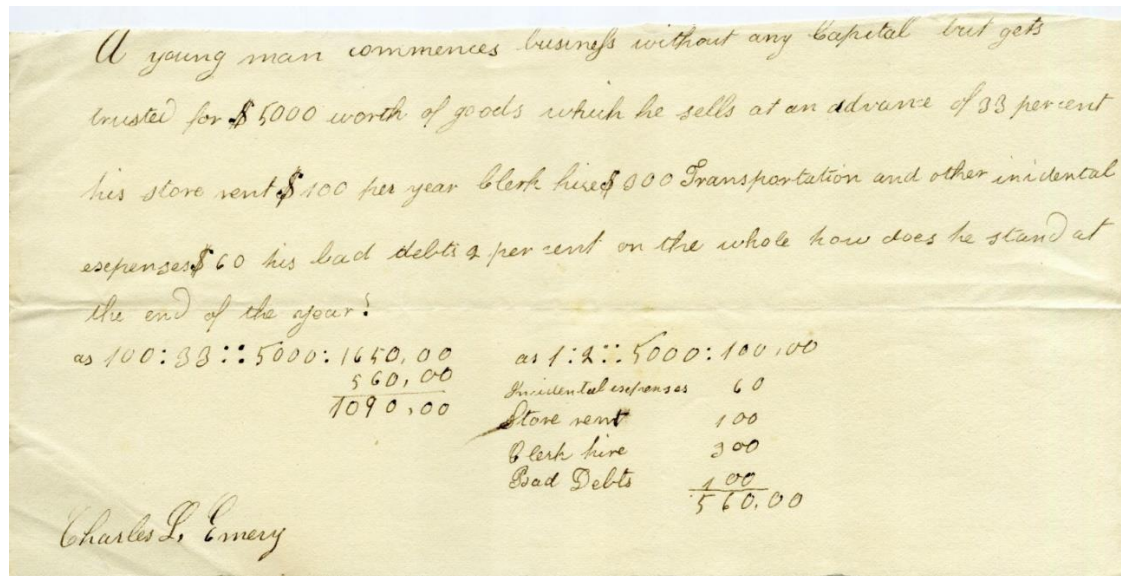 A young man commences business without any Capital but gets
trusted for $5000 worth of goods which he sells at an advance of 33 per cent
his store rent $100 per year Clerk hire $300 Transportation and other inidental
expenses $60 his bad debts 2 per cent on the whole how does he stand at
the end of the year?
as 100:33::5000:1650,00
560,00
1090,00
as 1:2::5000:100,00
Incidental expenses 60
Store rent 100
Clerk hire 300
Bad Debts 100
560.00
Charles L. Emery